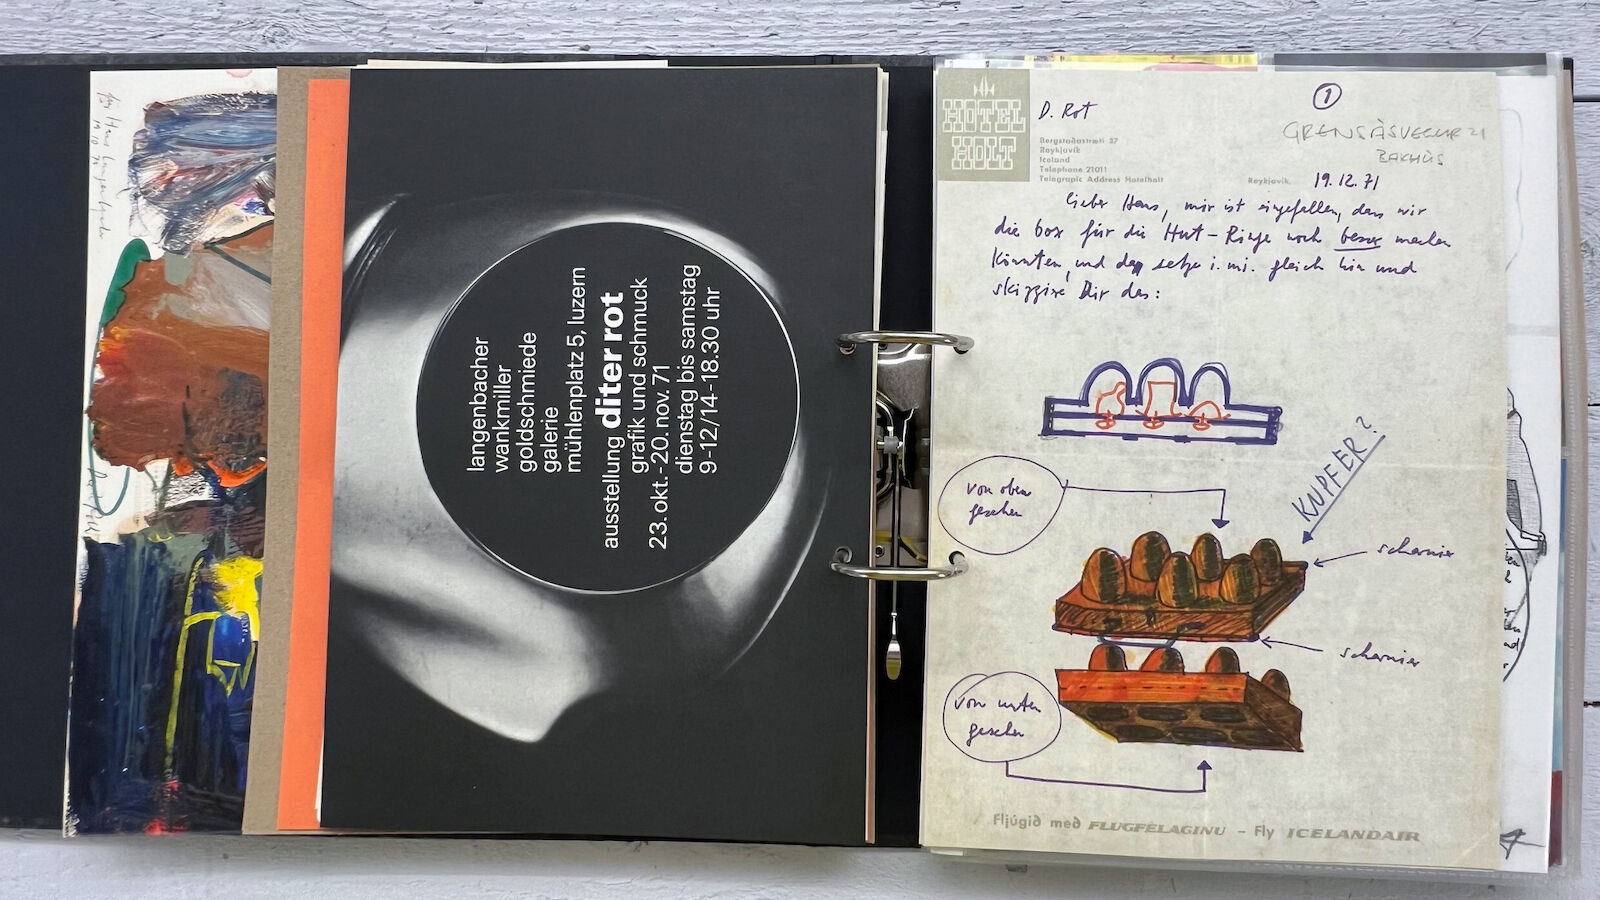 für Hans Langenbacher
langenbacher
wankmiller
goldschmiede
galerie
mühlenplatz 5, luzern
ausstellung diter rot
grafik und schmuck
23. okt. - 20. nov. 71
dienstag bis samstag
9-12/14-18.30 uhr
HOTEL
HOLT
D. Rot
1
GRENSÁSVEGUR 21
BAKHÚS
Bergstaðastræti 37
Reykjavík
Iceland
Telephone 21011
Telegrapic Address Hotelholt
Reykjavík, 19.12.71
Lieber Hans, mir ist eingefallen, dass wir
die box für die Hut-Ringe noch besser machen
könnten, und da setze i. mi. gleich hin und
skizziere Dir das:
KUPFER?
von oben
gesehen
scharnier
scharnier
von unten
gesehen
Fljúgið með FLUGFÉLAGINU - Fly ICELANDAIR